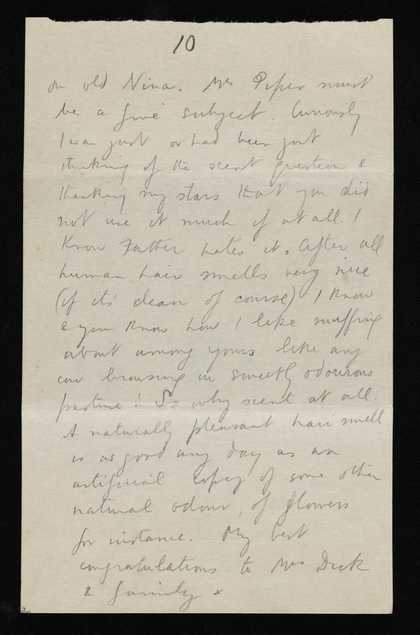 10
on old Nina. Mrs Piper must
be a fine subject. Curiously
I was just or had been just
thinking of the scent question &
thanking my stars that you did
not use it much if at all. I
know Father hates it. After all
human hair smells very nice
(if its clean of course) I know
& you know how I like snuffing
about among yours like any
cow browsing in sweetly odourous
pasture! So why scent at all.
A naturally pleasant hair smell
is as good any day as an
artificial copy of some other
natural odour, of flowers
for instance. My best
congratulations to Mrs Dick
& family